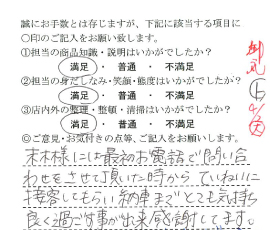 誠にお手数とは存じますが、下記に該当する項目に
○印のご記入をお願い致します。
①担当の商品知識・説明はいかがでしたか?
満足 ・ 普通 ・ 不満足
②担当の身だしなみ・笑顔・態度はいかがでしたか?
満足 ・ 普通 ・ 不満足
③店内外の整理・整頓・清掃はいかがでしたか?
満足 ・ 普通 ・ 不満足
◎ご意見・お気付きの点等、ご記入をお願いします。
様には最初お電話で問い合
わせをさせて頂いた時から ていねいに
接客してもらい納車までとても気持ち
良く過ごす事が出来感謝してます。